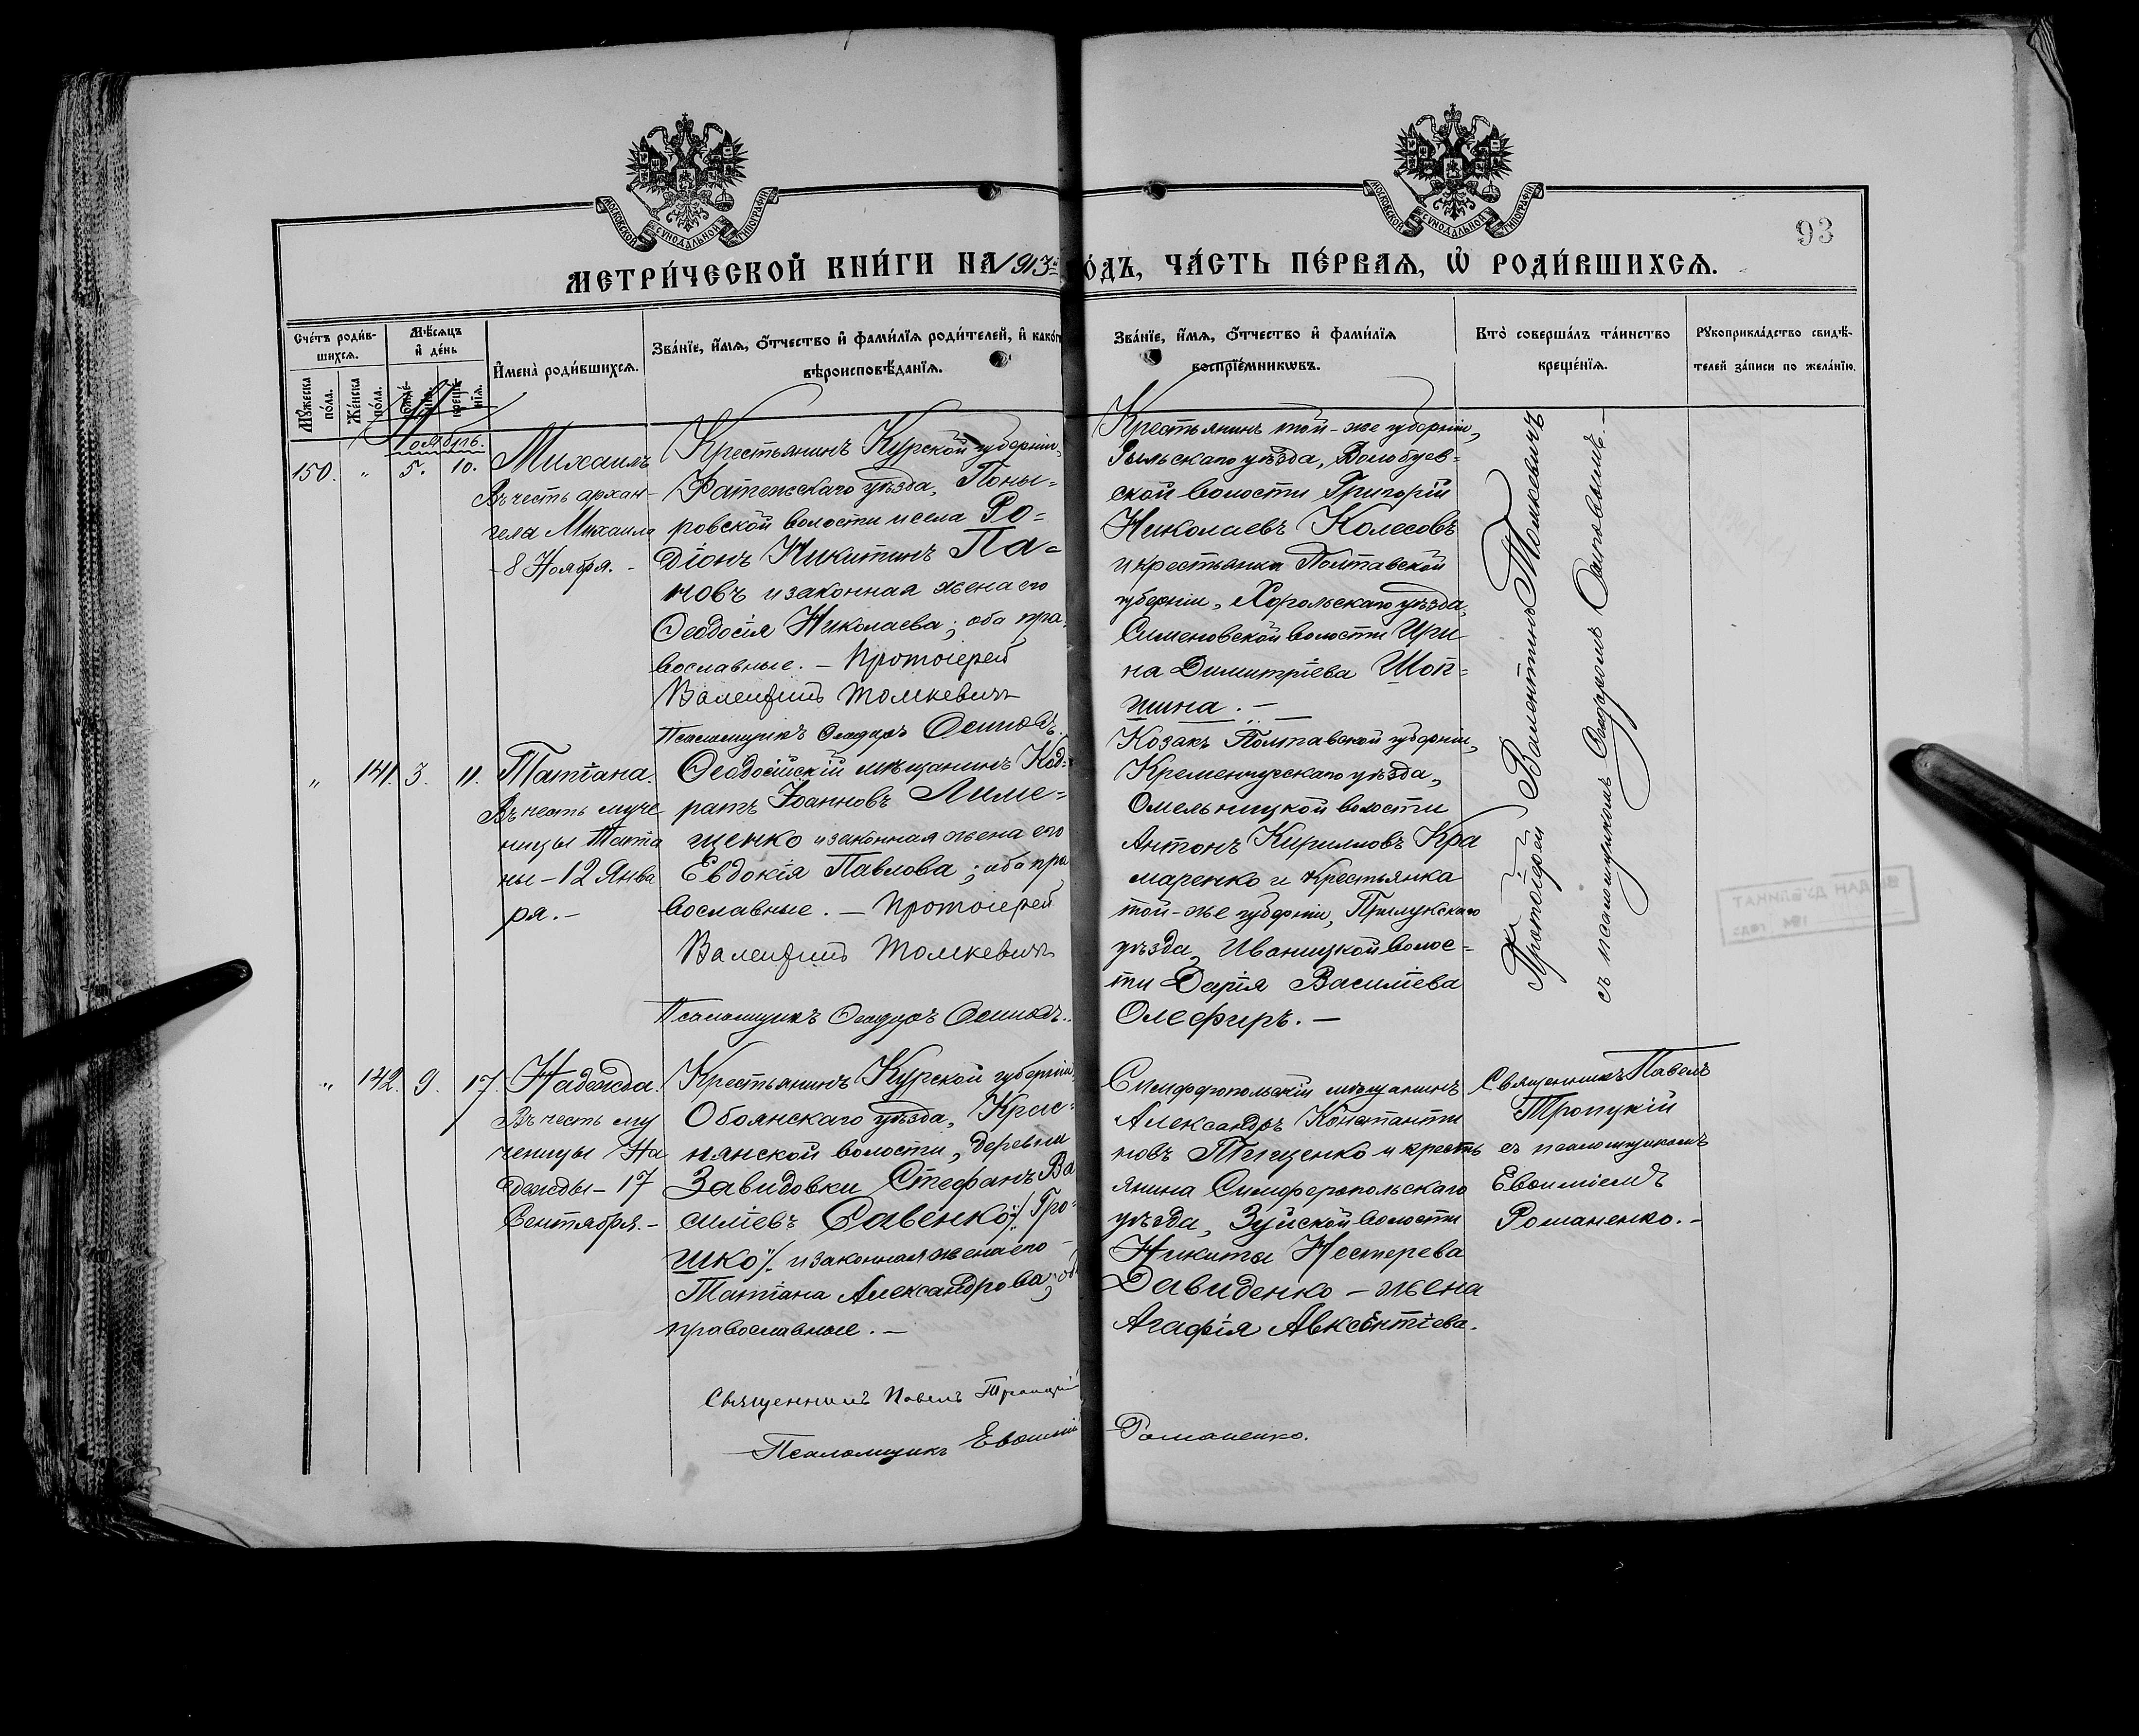 МОСКОВСКОЙ СѴНОДАЛЬНОЙ ТИПОГРАФІИ
МОСКОВСКОЙ СѴНОДАЛЬНОЙ ТИПОГРАФІИ
93
МЕТРИ́ЧЕСКОЙ КНИ́ГИ НА 1913й ГО́ДЪ, ЧА́СТЬ ПЕ́РВАЯ, Ѡ҆ РОДИ́ВШИХСЯ.
Сче́тъ роди́в-
шихся.
Мѣ́сяцъ
и҆ де́нь
И҆мена̀ роди́вшихся.
Зва́нїе, и҆́мя, ѻ҆́тчество и҆ фами́лїя роди́телей, и҆ како́гѡ
вѣроисповѣ́данїя.
Зва́нїе, и҆́мя, ѻ҆́тчество и҆ фами́лїя
воспрїе́мникѡвъ.
Кто̀ соверша́лъ та́инство
креще́нїя.
Рꙋкоприкла́дство свидѣ́-
телей за́писи по жела́нїю.
Мꙋ́жеска
по́ла.
Же́нска
по́ла.
рожде́-
нїя.
креще́-
нїя.
Ноябрь.
150. " 5. 10. Михаилъ
Въ честь архан-
гела Михаила
- 8 Ноября. -
Крестьянинъ Курской губерніи,
Фатежскаго уѣзда, Поны-
ровской волости и села Ро-
діонъ Никитинъ Па-
новъ и законная жена его
Ѳеодосія Николаева; оба пра-
вославные. - Протоіерей
Валентинъ Томкевичъ
Псаломщикъ Осиповъ.
Крестьянинъ той-же губерніи,
Рыльскаго уѣзда, Волобуев-
ской волости Григорій
Николаевъ Колесовъ
и крестьянка Полтавской
губерніи, Хорольскаго уѣзда,
Семеновской волости Ири
на Димитріева Шоп-
шина. -
Протоіерей Валентинъ Томкевичъ
съ псаломщикомъ Осиповымъ. -
" 141. 3. 11. Татіана.
Въ честь муче
ницы Татіа
ны - 12 Янва
ря. -
Ѳеодосійскій мѣщанинъ Код-
ратъ Іоанновъ Лиме-
щенко и законная жена его
Евдокія Павлова; оба пра
вославные. - Протоіерей
Валентинъ Томкевичъ
Псаломщикъ Осиповъ.
Козакъ Полтавской губерніи,
Кременчугскаго уѣзда,
Омельницкой волости
Антонъ Кирилловъ Кра
маренко и крестьянка
той-же губерніи, Прилукскаго
уѣзда, Иваницкой волос-
ти Дарія Василіева
Олефиръ. -
" 142. 9. 17. Надежда.
Въ честь му
ченицы На
дежды - 17
Сентября. -
Крестьянинъ Курской губерніи,
Обоянскаго уѣзда, Крас-
нянской волости, деревни
Завидовки Стефанъ Ва
силіевъ Савенко /Гро-
шко/ и законная жена его
Татіана Александрова; об
православные. -
Священникъ Павелъ Троицкій
Псаломщикъ Евѳимій Романенко.
Симферопольскій мѣщанинъ
Александръ Константи
новъ Тищенко и кресть
янина Симферопольскаго
уѣзда, Зуйской волости
Никиты Нестерева
Давиденко - жена
Агафія Авксентіева.
Священникъ Павелъ
Троицкій
съ псаломщикомъ
Евѳиміемъ
Романенко. -
ВЫДАН ДУБЛИКАТ
194 года